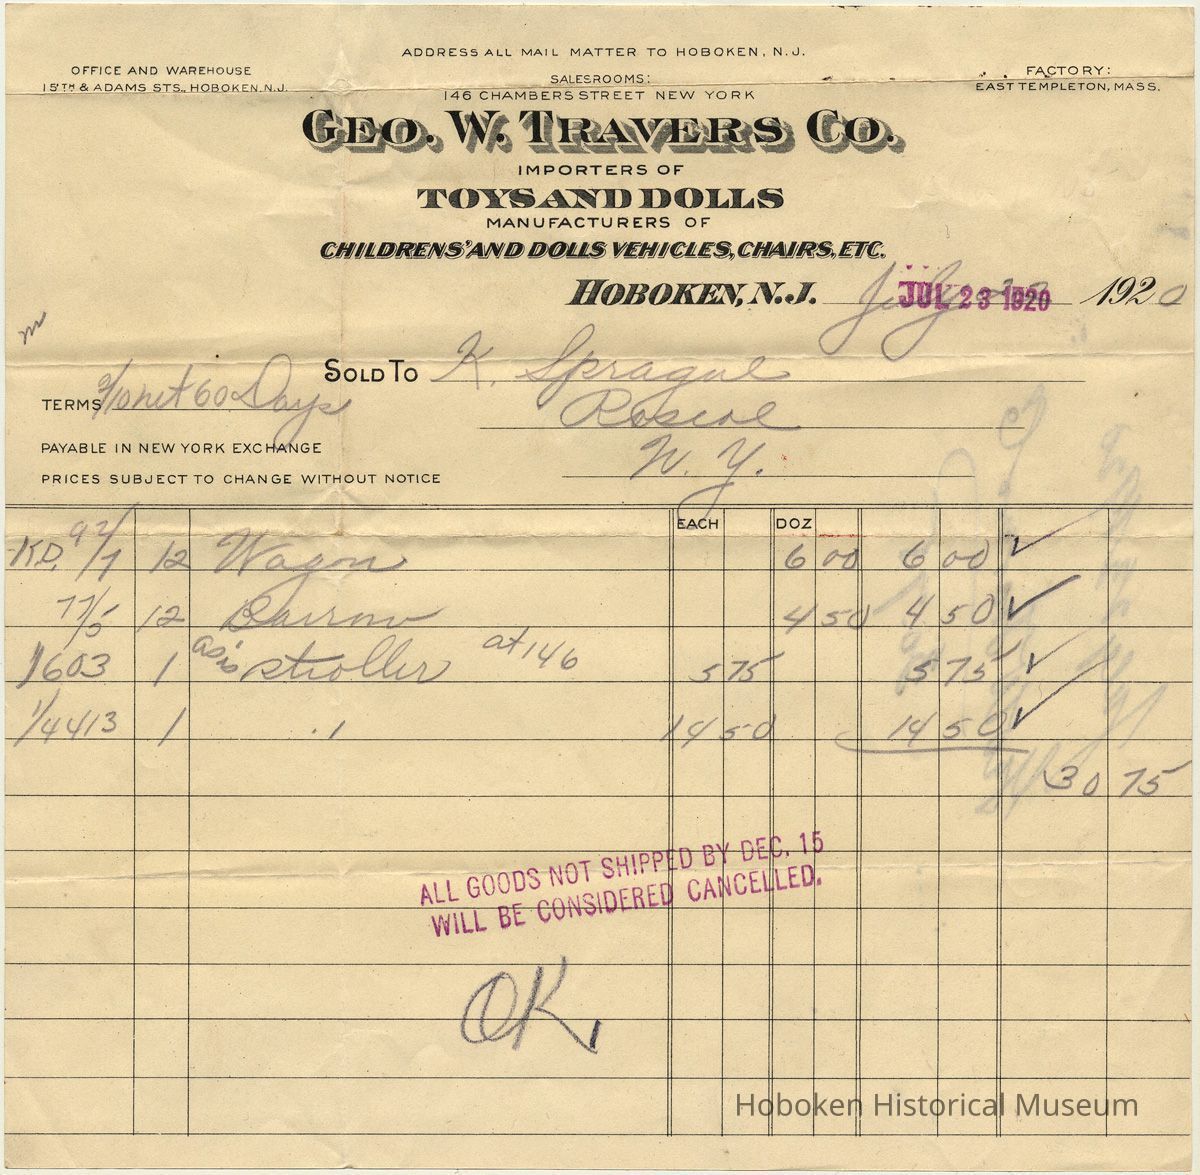 ADDRESS ALL MAIL MATTER TO HOBOKEN, N.J.
OFFICE AND WAREHOUSE
15TH & ADAMS STS., HOBOKEN, N.J.
SALESROOMS:
146 CHAMBERS STREET NEW YORK
FACTORY:
EAST TEMPLETON, MASS.
GEO. W. TRAVERS CO.
IMPORTERS OF
TOYS AND DOLLS
MANUFACTURERS OF
CHILDRENS' AND DOLLS VEHICLES, CHAIRS, ETC.
HOBOKEN, N.J. July JUL 23 1920 1920
SOLD TO K. Sprague
TERMS net 60 Days
Roscoe
PAYABLE IN NEW YORK EXCHANGE
N. Y.
PRICES SUBJECT TO CHANGE WITHOUT NOTICE
EACH DOZ
K.D. 92/1 12 Wagon 6 00 6 00 ✓
77/5 12 Barrow 4 50 4 50 ✓
1603 1 as is stroller at 146 5 75 5 75 ✓
1/4413 1 14 50 14 50 ✓
30 75
ALL GOODS NOT SHIPPED BY DEC. 15
WILL BE CONSIDERED CANCELLED.
OK
Hoboken Historical Museum